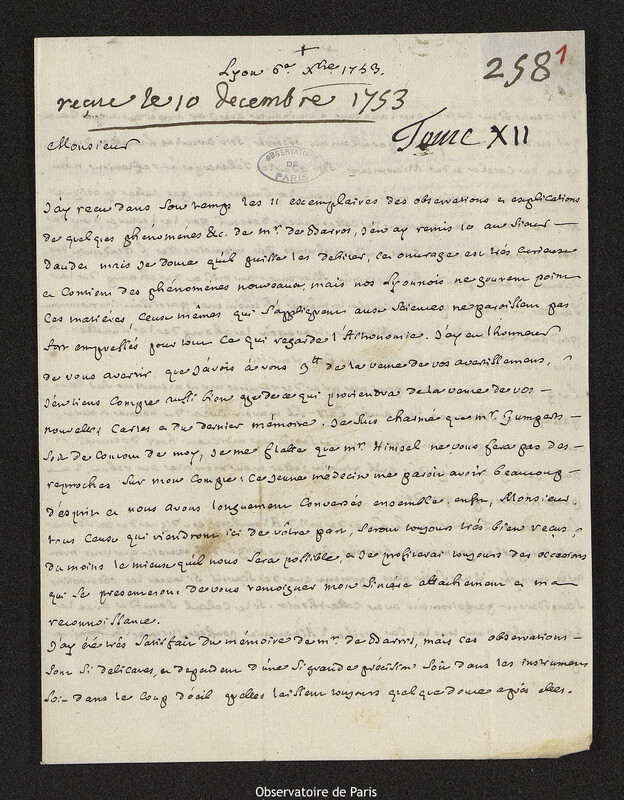 +
Lyon 6e. Xbre 1753.
reçue le 10 decembre 1753
258 1
Tome XII
Monsieur
OBSERVATOIRE
DE
PARIS
J'ay reçu dans son temps les 11 exemplaires des observations et explications
de quelques phénomenes &c. de mr. de Barros, j'en ay remis 10 au Sieur
mais je doute qu'il puisse les debiter, cet ouvrage est très curieux
et Contient des phénomenes nouveaux, mais nos Lyonnois ne goutent point
Ces matières, Ceux mêmes qui s'appliquent aux Sciences ne paroissent pas
fort empressés pour tout Ce qui regarde l'Astronomie. J'ay eu l'honneur
de vous avertir que j'avois à vous 9 tt de la vente de vos avertissemens,
j'en tiens Compte aussi bien que de ce qui proviendra de la vente de vos
nouvelles Cartes et du dernier mémoire. Je suis charmé que mr. Gumperts
soit Content de moy, je me flatte que mr. Himsel ne vous fera pas des
reproches sur mon Compte; Ce jeune médecin me paroit avoir beaucoup
d'esprit et nous avons longuement Conversés ensemble. enfin, Monsieur,
tous Ceux qui viendront ici de vôtre part, seront toujours très bien reçus,
du moins le mieux qu'il nous sera possible, et je profiterai toujours des occasions
qui se presenteront de vous temoigner mon sincère attachement et ma
reconnoissance.
J'ay été très satisfait du mémoire de mr. de Barros, mais ces observations
sont si delicates, et dependent d'une si grande précision soit dans les instrumens
soit dans le Coup d'oeil qu'elles laissent toujours quelque doute après elles.
Observatoire de Paris